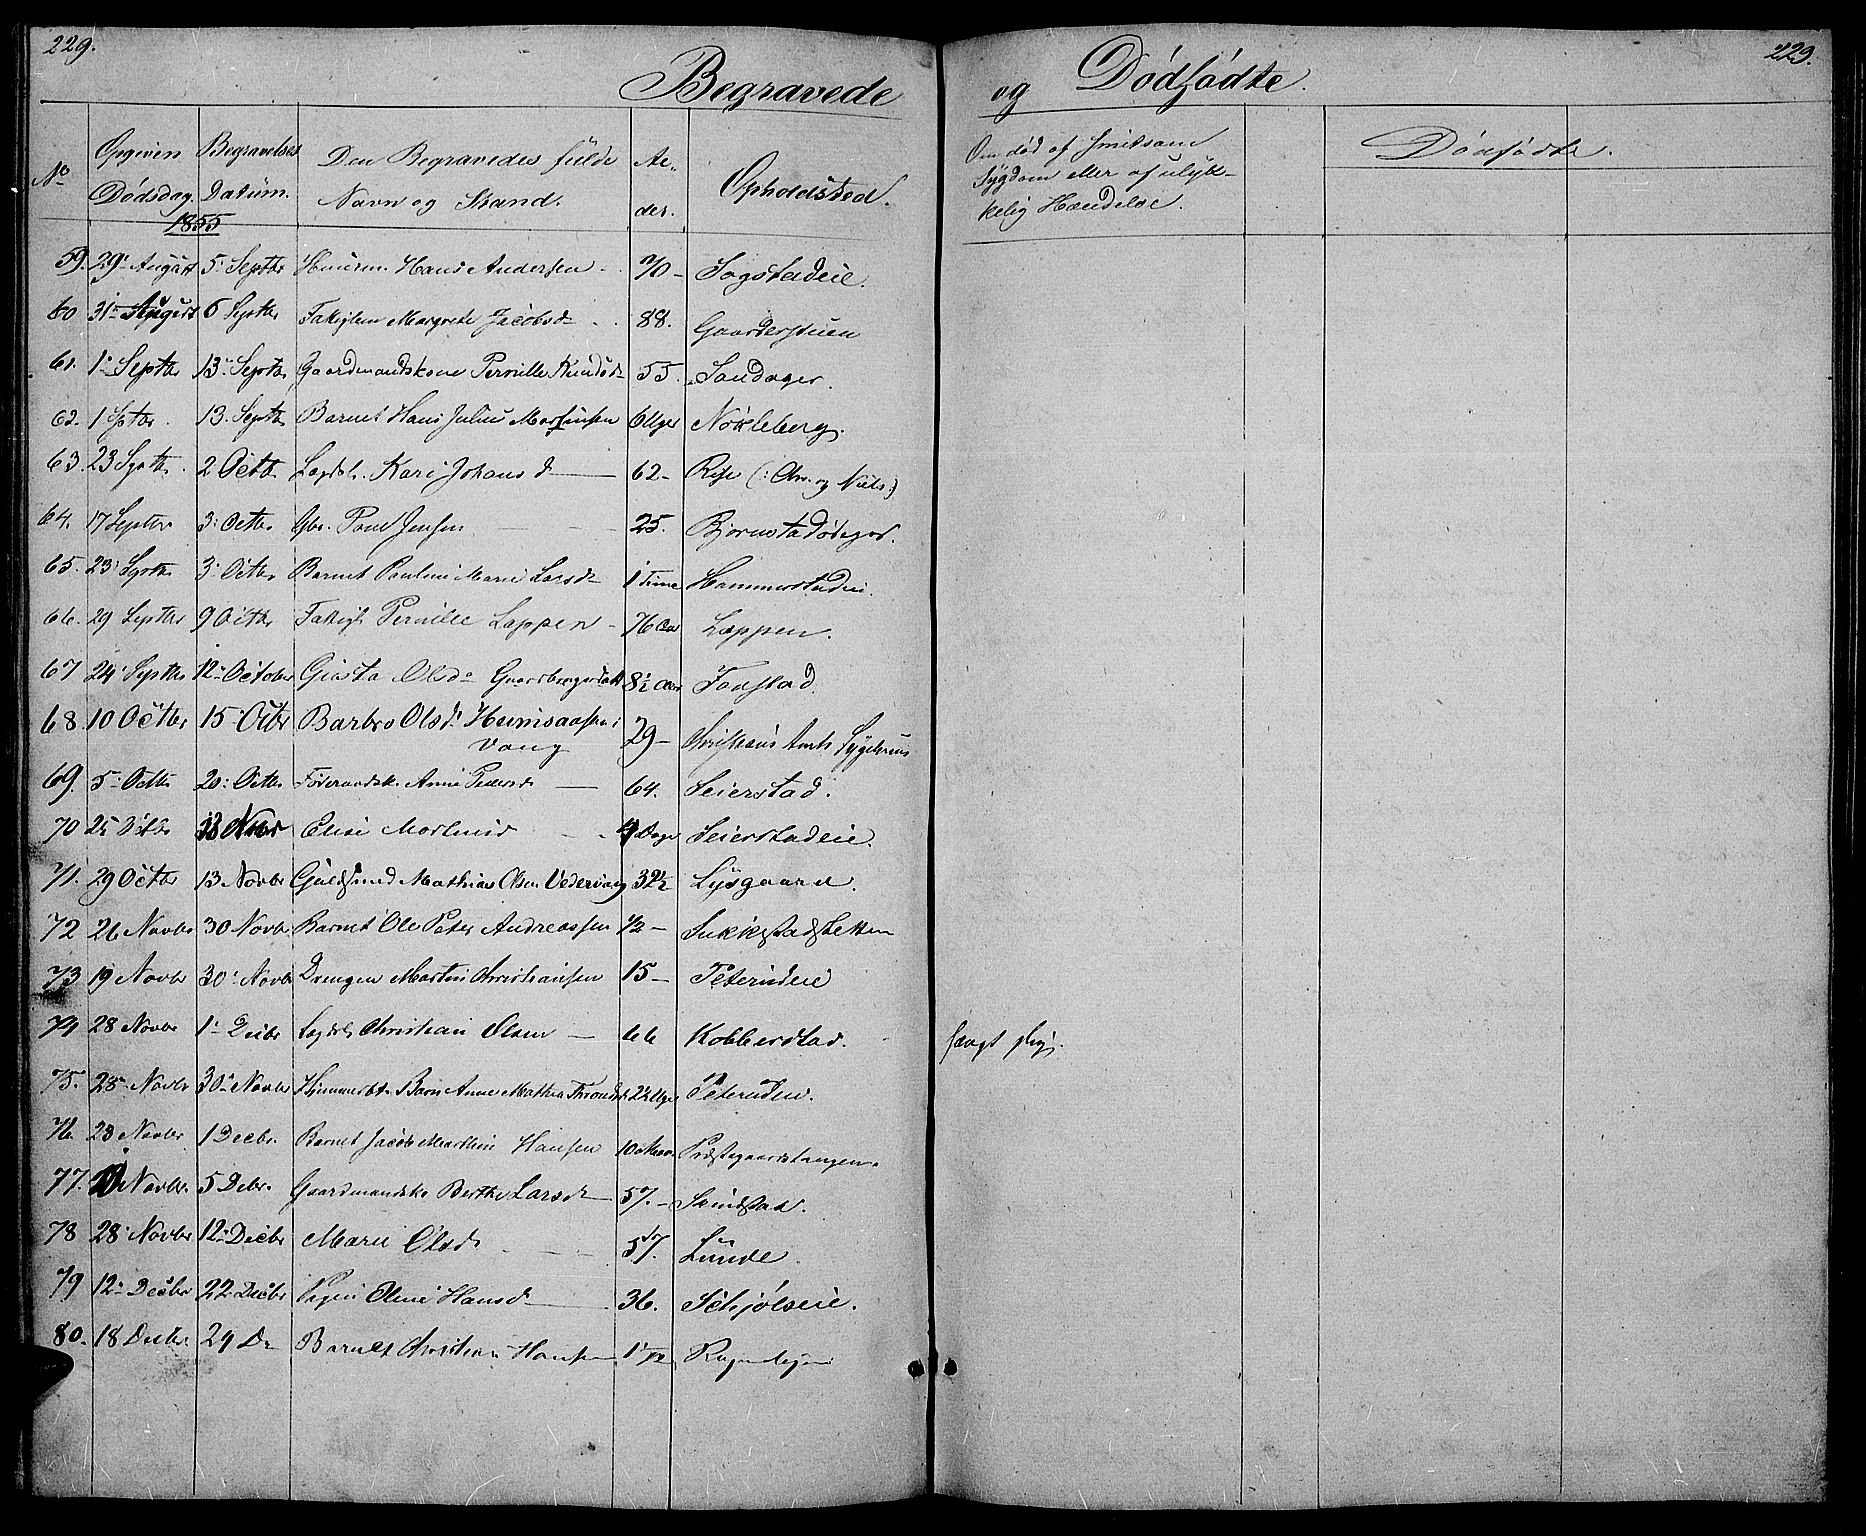 229.
229.
Begravede og Dødfødte.
No
Opgiven Dødsdag.
Begravelses Datum.
Den Begravedes fulde Navn og Stand.
Al-
der.
Opholdsted.
Om død af smitsom
Sygdom eller af ulyk-
kelig Hændelse.
Dødfødte.
1855
59. 29 August 5 Septbr Huusm. Hans Andersen 70 - Sogstadeie.
60 31 August 6 Septbr Fattiglem Margrete Jacobsd 88. Gaarderstuen
61. 1 Septbr 13 Septbr Gaardmandskone Pernille Knudsd 55. Sandager.
62. 1 Sptbr. 13. Septbr Barnet Hans Julius Martinsen 6 Uger Nøkleberg.
63. 23 Septbr. 2 Octb Lægdsl. Kari Johansd 62 - Rise (: Chr. og Niels:)
64. 17 Septbr 3 Octbr Gbr. Poul Jensen 25. Bjørnstadødegrd.
65. 23 Septbr 3 Octbr Barnet Pauline Marie Larsd 1 Time Hammerstadeie.
66. 29 Septbr 9 Octbr Fattigl. Pernille Lappen - 76 Aar Lappen.
67 24 Septbr 12 October Giøsta Olsd Gaardbrugerdatt 8½ Aar Faastad.
68. 10 Octbr 15 Octbr Barbro Olsd.
Vang 29 - Christians Amts Sygehuus
69. 5 Octbr 20 Octbr Føderaadsk. Anne Pedersd 64. Seierstad.
70 25 Octbr Novbr Elise Mortensd Dage Seierstadeie.
71. 29 Octbr 13 Novbr Guldsmed Mathias Olsen Vedervang 32½ Lysgaard.
72 26 Novbr 30 Novbr Barnet Ole Peter Andreassen ½ - Sukkestadsletten
73 19 Novbr 30 Novbr Drengen Martin Christiansen 15 - Peterudeie
74 28 Novbr 1 Decbr Lægdsl. Christian Olsen 66 Kobberstad.
75. 28 Novbr 30 Novbr Barn Anne Mathea Throndsd 2½ Uge Peterudeie.
76. 23 Novbr 1 Decbr. Barnet Jacob Martin Hansen 10 Præstegaardstangen.
77. Novbr. 5 Debr. Gaardmandsko Berthe Larsd 57. - Sundstad.
78 28 Novbr 12 Decbr Marie Olsd 57. Lunde.
79 12 Decbr 22 Decbr Pigen Oline Hansd 36. Schjølseie.
80. 18 Decbr 29 De Barnet Christian Hansen